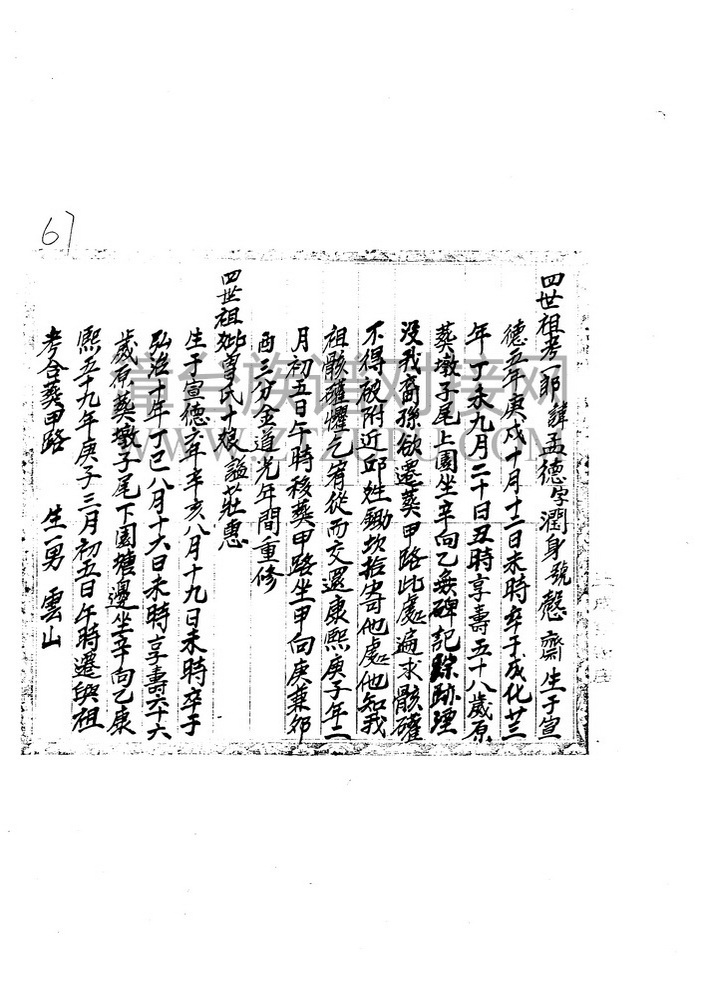 67
四世祖考一郎諱孟德字潤身號慤齋生于宣
德五年庚戌十月十二日未時卒于成化廿三
年丁未九月二十日丑時享壽五十八歲原
葬墩子尾上園坐辛向乙無碑記踪跡埋
沒我裔孫欲遷葬甲路此處遍求骸確
不得被附近邱姓鋤坎拾寄他處他知我
祖骸確懼乞宥從而交還康熙庚子年二
月初五日午時移葬甲路坐甲向庚兼卯
酉三分金道光年間重修
四世祖妣曾氏十娘謚莊惠
生于宣德六年辛亥八月十九日未時卒于
弘治十年丁巳八月十六日未時享壽六十六
歲原葬墩子尾下園塘邊坐辛向乙康
熙五十九年庚子三月初五日午時遷與祖
考合葬甲路 生一男 雲山
道台族谱对接网
WWW.ZTZUPU.COM